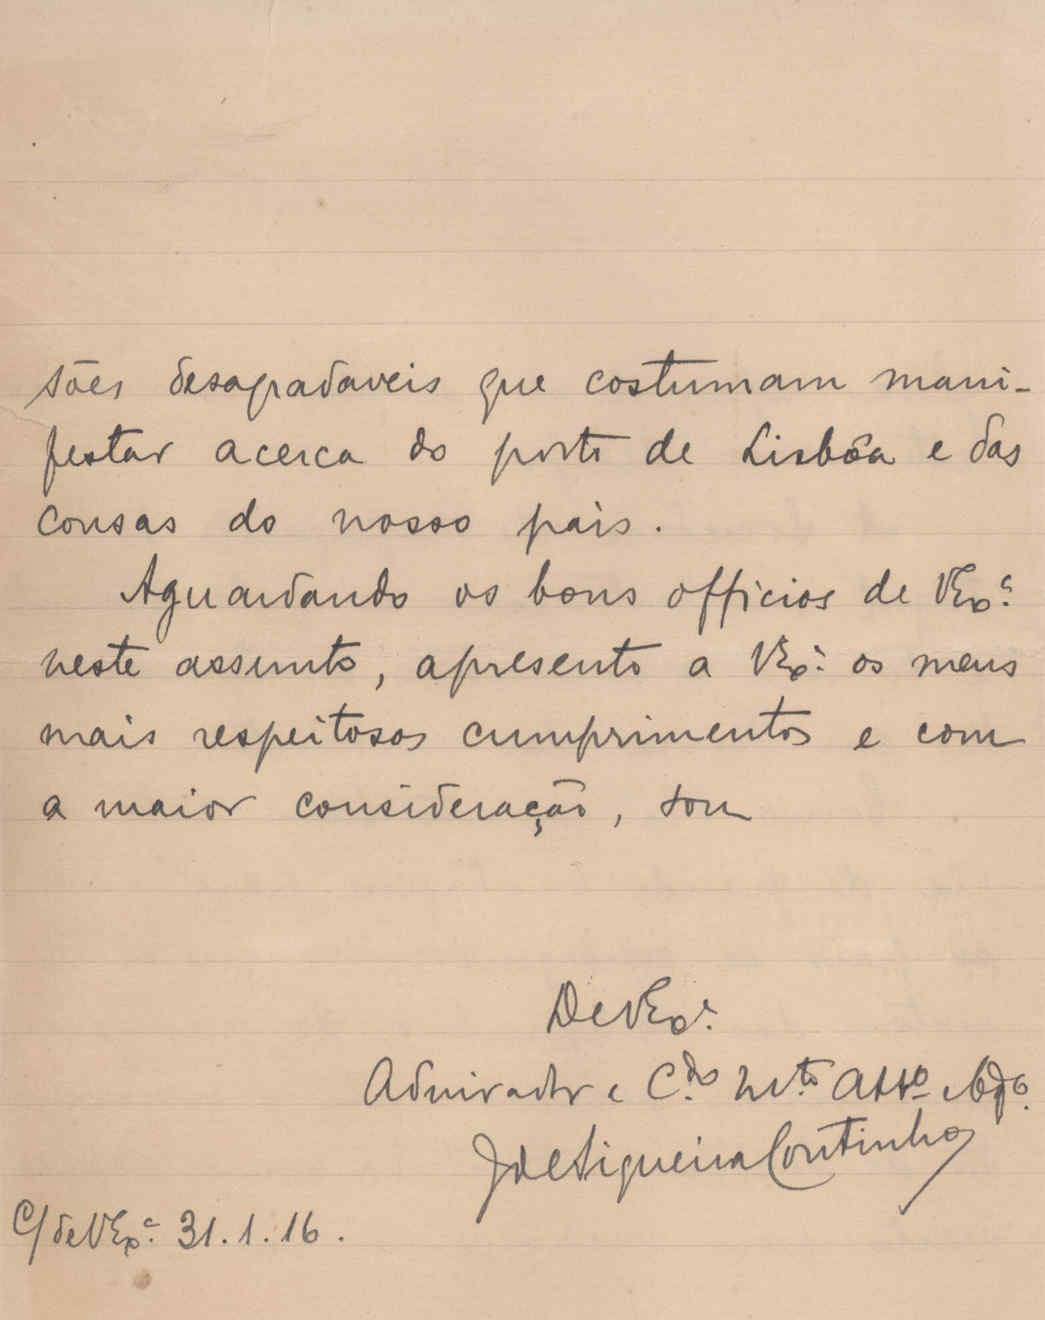 sões desagradaveis que costumam mani-
festar acerca do porto de Lisbôa e das
cousas do nosso pais.
Aguardando os bons officios de VExª.
neste assunto, apresento a VExª. os meus
mais respeitosos cumprimentos e com
a maior consideração, sou
De VExª.
Admirador e C.do Mto. Atto e Obgo.
J de Siqueira Coutinho
C/ de VExª. 31.1.16.